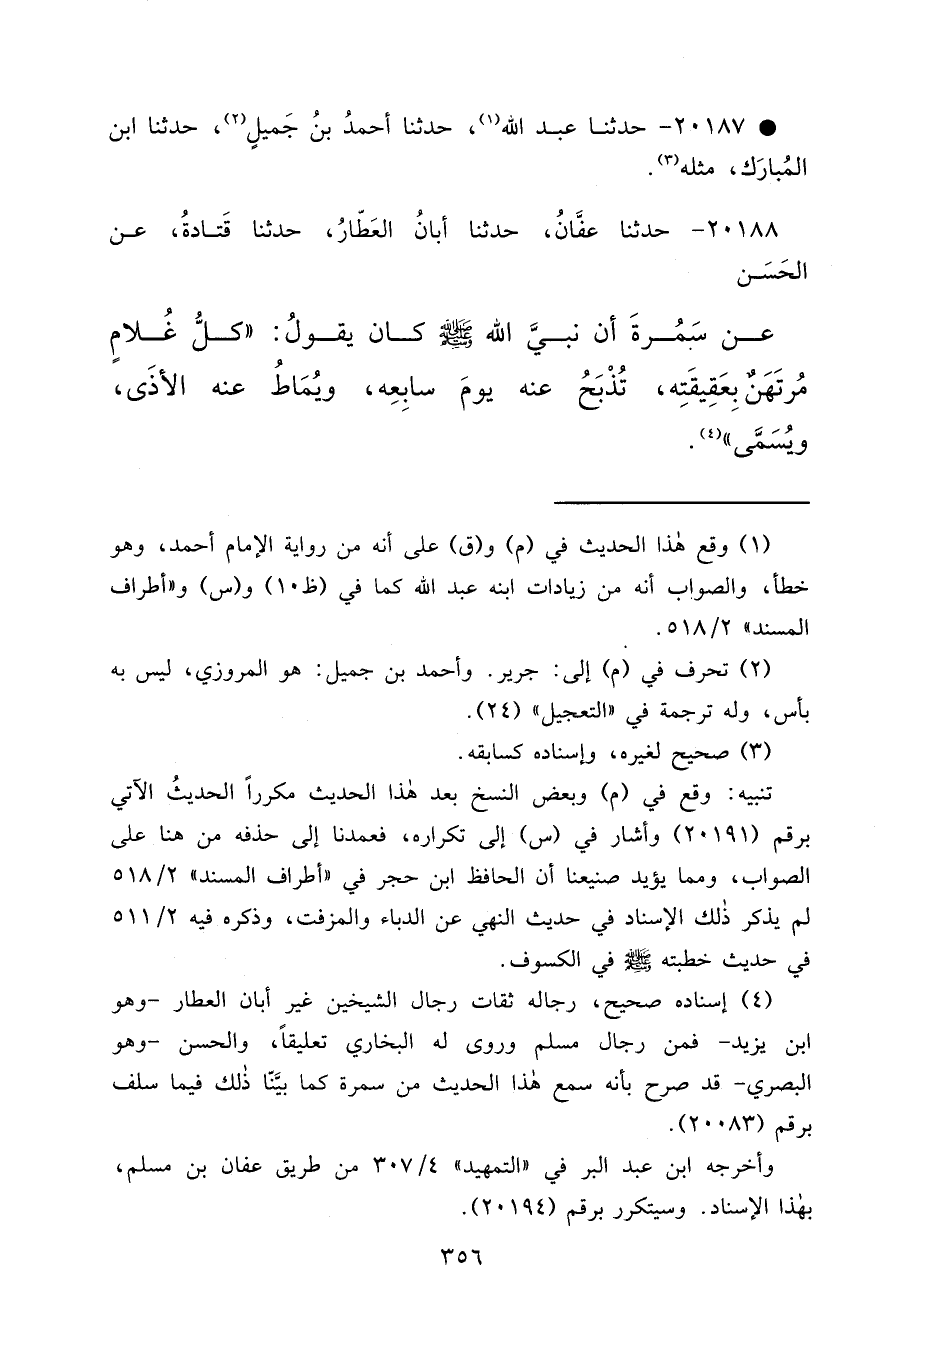 ● ٢٠١٨٧- حدثنا عبد الله(١)، حدثنا أحمدُ بنُ جَميلٍ(٢)، حدثنا ابن
المُبارَك، مثله(٣).
٢٠١٨٨- حدثنا عفَّانُ، حدثنا أبانُ العَطّارُ، حدثنا قَتادةُ، عن
الحَسَن
عن سَمُرةَ أن نبيَّ الله ﷺ كان يقولُ: «كلُّ غُلامٍ
مُرتَهَنٌ بِعَقِيقَتِه، تُذْبَحُ عنه يومَ سابِعِه، ويُماطُ عنه الأذَى،
ويُسَمَّى»(٤).
(١) وقع هٰذا الحديث في (م) و(ق) على أنه من رواية الإمام أحمد، وهو
خطأ، والصواب أنه من زيادات ابنه عبد الله كما في (ظ١٠) و(س) و«أطراف
المسند» ٢/٥١٨.
(٢) تحرف في (م) إلى: جرير. وأحمد بن جميل: هو المروزي، ليس به
بأس، وله ترجمة في «التعجيل» (٢٤).
(٣) صحيح لغيره، وإسناده كسابقه.
تنبيه: وقع في (م) وبعض النسخ بعد هٰذا الحديث مكرراً الحديثُ الآتي
برقم (٢٠١٩١) وأشار في (س) إلى تكراره، فعمدنا إلى حذفه من هنا على
الصواب، ومما يؤيد صنيعنا أن الحافظ ابن حجر في «أطراف المسند» ٢/٥١٨
لم يذكر ذٰلك الإسناد في حديث النهي عن الدباء والمزفت، وذكره فيه ٢/٥١١
في حديث خطبته ﷺ في الكسوف.
(٤) إسناده صحيح، رجاله ثقات رجال الشيخين غير أبان العطار -وهو
ابن يزيد- فمن رجال مسلم وروى له البخاري تعليقاً، والحسن -وهو
البصري- قد صرح بأنه سمع هٰذا الحديث من سمرة كما بيَّنّا ذٰلك فيما سلف
برقم (٢٠٠٨٣).
وأخرجه ابن عبد البر في «التمهيد» ٤/٣٠٧ من طريق عفان بن مسلم،
بهٰذا الإسناد. وسيتكرر برقم (٢٠١٩٤).
٣٥٦